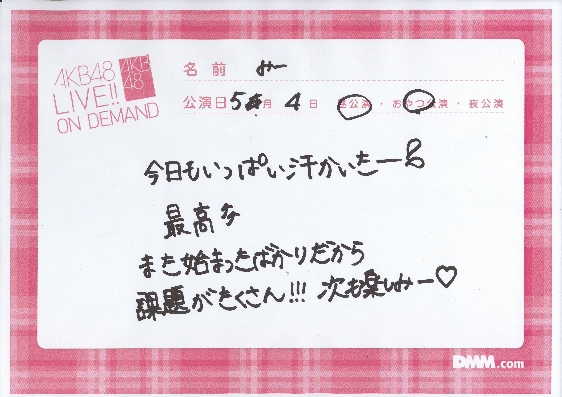 AKB48
LIVE!!
ON DEMAND
AKB
48
名前 みー
公演日 5月 4日 昼公演・おやつ公演・夜公演
今日もいっぱい汗かいたー
最高な
また始まったばかりだから
課題がたくさん!!! 次も楽しみー♡
DMM.com